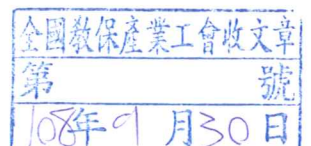 全國教保產業工會收文章
第 號
108年9月30日